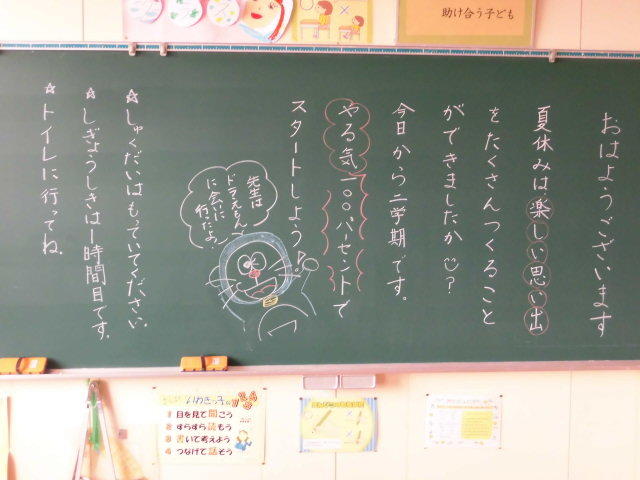 助け合う子ども
おはようございます
夏休みは楽しい思い出
をたくさんつくること
ができましたか?
今日から二学期です。
やる気一〇〇パーセントで
スタートしよう!
先生は
ドラえもん
に会いに
行ったよ!
☆しゅくだいはもっていてください。
☆しぎょうしきは1時間目です。
☆トイレに行ってね。
1 目を見て聞こう
2 すらすら読もう
3 書いて考えよう
4 つなげて話そう